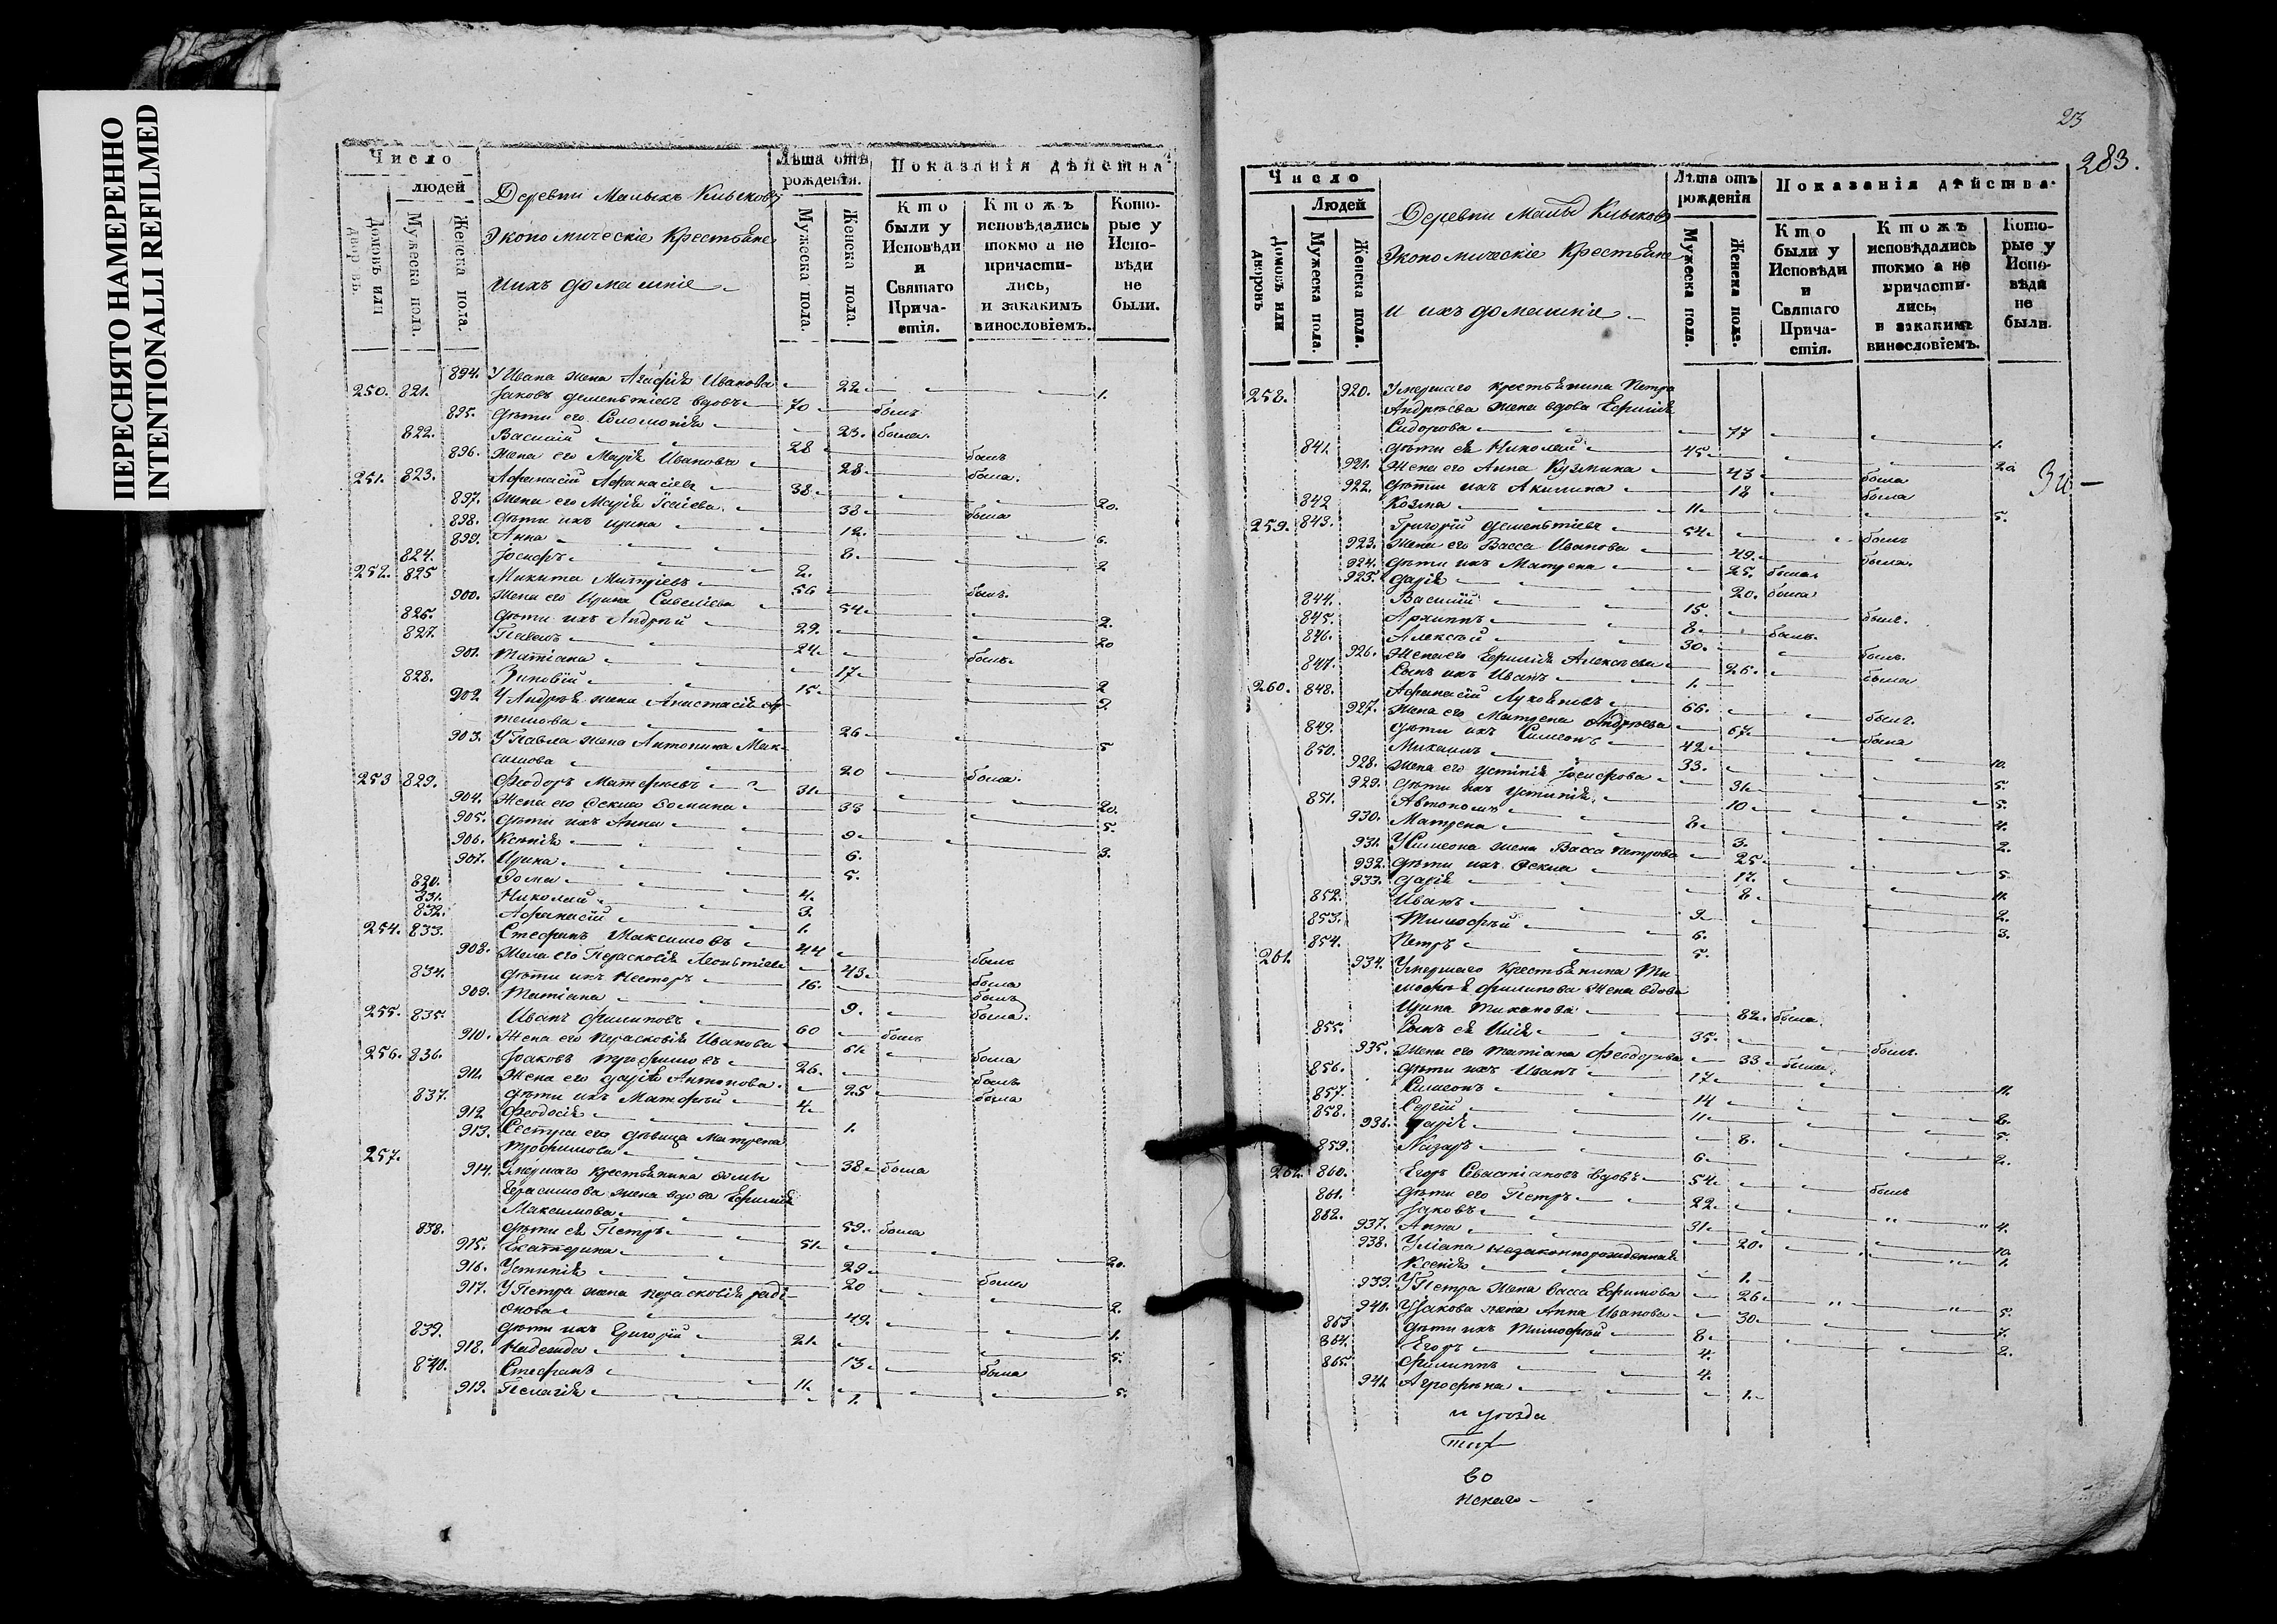 ПЕРЕСНЯТО НАМЕРЕННО
INTENTIONALLI REFILMED
Число
людей
Домовъ или
Мужеска пола.
Женска пола.
Деревни Малыхъ
Экономическіе Крестьяне
и ихъ домашніе
Лѣта отъ
рожденія.
Мужеска пола.
Женска пола.
Показанія дѣйства
Кто
были у
Исповѣди
и
Святаго
Прича-
стія.
Ктожъ
исповѣдались
токмо а не
причасти-
лись,
и закакимъ
винословіемъ.
Кото-
рые у
Испо-
вѣди
не
были.
894. У Ивана жена Агафія Иванова 22 1.
250. 821. Іаковъ Дементіевъ вдовъ 70 былъ
895. Дѣти его Соломонія 23. была.
822. Василій 28 былъ
896. Жена его Марія Иванова 28 была.
251. 823. Афанасій Афанасіевъ 38. 20.
897. Жена его Марія 38 была
898. Дѣти ихъ Ирина 12. 6.
899. Анна 8. 2
824. Іосифъ 2.
252. 825 Никита Митріевъ 56 былъ.
900. Жена его Ирина Савеліева 54 2.
826. Дѣти ихъ Андрей 29. 20
827. Павелъ 24 былъ
901. Татіана 17 2
828. Зиновій 15 2
902. У Андрея жена Анастасія Ар-
темова 26 5
903. У Павла жена Антонина Мак-
симова 20 была.
253 829. Феодоръ Матфеевъ 31 20.
904. Жена его Фекла Фомина 33 5.
905. Дѣти ихъ Анна 9 3.
906. Ксенія 6.
907. Ирина 5.
830. Фома 4.
831. Николай 3.
832. Афанасій 1.
254. 833. Стефанъ Максимовъ 44 былъ
908. Жена его Парасковія Леонтіева 43 была
834. Дѣти ихъ Несторъ 16. былъ
909. Татіана 9. была.
255. 835. Иванъ Филиповъ 60 былъ
910. Жена его Парасковія Иванова 61 была
256. 836. Іаковъ Трофимовъ 26. былъ
911. Жена его Дарія Антонова 25 была
837. Дѣти ихъ Матфей 4
912. Феодосія 1.
913. Сестра его дѣвица Матрена
Трофимова 38 была
257.
914. Умершаго крестьянина Фомы
Герасимова жена вдова Ефимія
Максимова 59. была
838. Дѣти ея Петръ 51 20.
915. Екатерина 29
916. Устинія 20 была
917. У Петра жена Парасковія Роді-
онова 49. 1.
839. Дѣти ихъ Григорій 21. 5.
918. Надежда 13 была
840. Стефанъ 11. 5.
919. Пелагія 1.
23
283.
Число
Людей
Домовъ или
дворовъ
Мужеска пола.
Женска пола.
Деревни Малы
Экономическіе Крестьяне
и ихъ домашніе
Лѣта отъ
рожденія
Мужеска пола.
Женска пола.
Показанія дѣйства.
Кто
были у
Исповѣди
и
Святаго
Прича-
стія.
Ктожъ
исповѣдались
токмо а не
причасти-
лись,
и закакимъ
винословіемъ.
Кото-
рые у
Испо-
вѣди
не
были.
258. 920. Умершаго крестьянина Петра
Андреева жена вдова Ефимія
Сидорова 77 1.
841. Дѣти ея Николай 45
921. Жена его Анна Кузмина 43 была
922. Дѣти ихъ Акилина 18 была
842 Козма 11 5.
259. 843. Григорій Дементіевъ 54 былъ
923. Жена его Васса Иванова 49. была.
924. Дѣти ихъ Матрена 25. была
925. Дарія 20. была
844. Василій 15. былъ.
845. Архиппъ 8 былъ.
846. Алексѣй 30. былъ.
926. Жена его Ефимія Алексѣева 26. была
847. Сынъ ихъ Иванъ 1.
260. 848. Афанасій Лукояновъ 66. былъ.
927. Жена его Матрена Андреева 67. была
849. Дѣти ихъ Симеонъ 42 10.
850. Михаилъ 33. 5.
928. Жена его Устинія Іосифова 31 5.
929. Дѣти ихъ Устинія 10 4.
851. Автономъ 8
930. Матрена 3. 2.
931. У Симеона жена Васса Петрова 25 5
932. Дѣти ихъ Фекла 17. 11.
933. Дарія 8 2.
852. Иванъ 9 3.
853. Тимофѣй 6.
854. Петръ 5.
261. 934. Умершаго крестьянина Ти-
мофѣя Филипова жена вдова
Ирина Тиханова 82. была.
855. Сынъ ея Илія 35. былъ.
935. Жена его Татіана Феодорова 33 была.
856. Дѣти ихъ Иванъ 17 11.
857. Симеонъ 14 8.
858. Сергій 11 5.
936. Дарія 8. 2.
859. Назаръ 6
262. 860. Егоръ Севастіановъ вдовъ 54 былъ
861. Дѣти его Петръ 22 4.
862. Іаковъ 31 10.
937. Анна 20. 1.
938. Уліана незаконнорожденная
Ксенія 1.
939. У Петра жена Васса Ефимова 26 5.
940. У Іакова жена Анна Иванова 30. 7.
863 Дѣти ихъ Тимофѣй 8 2.
864. Егоръ 4.
865. Филиппъ 4.
941. Агрофѣна 1.
и уѣзда
во